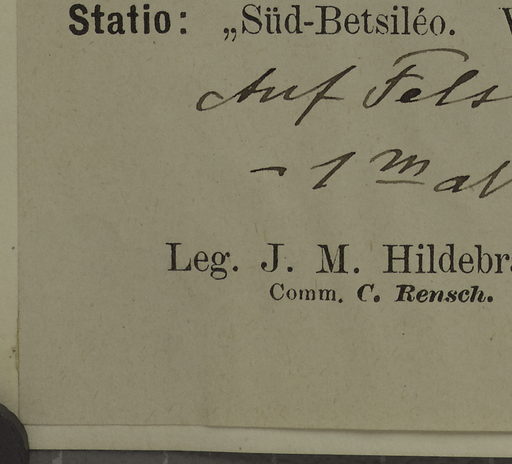 Statio: „Süd-Betsiléo.
Auf Fels
- 1 m al
Leg. J. M. Hildebra
Comm. C. Rensch.